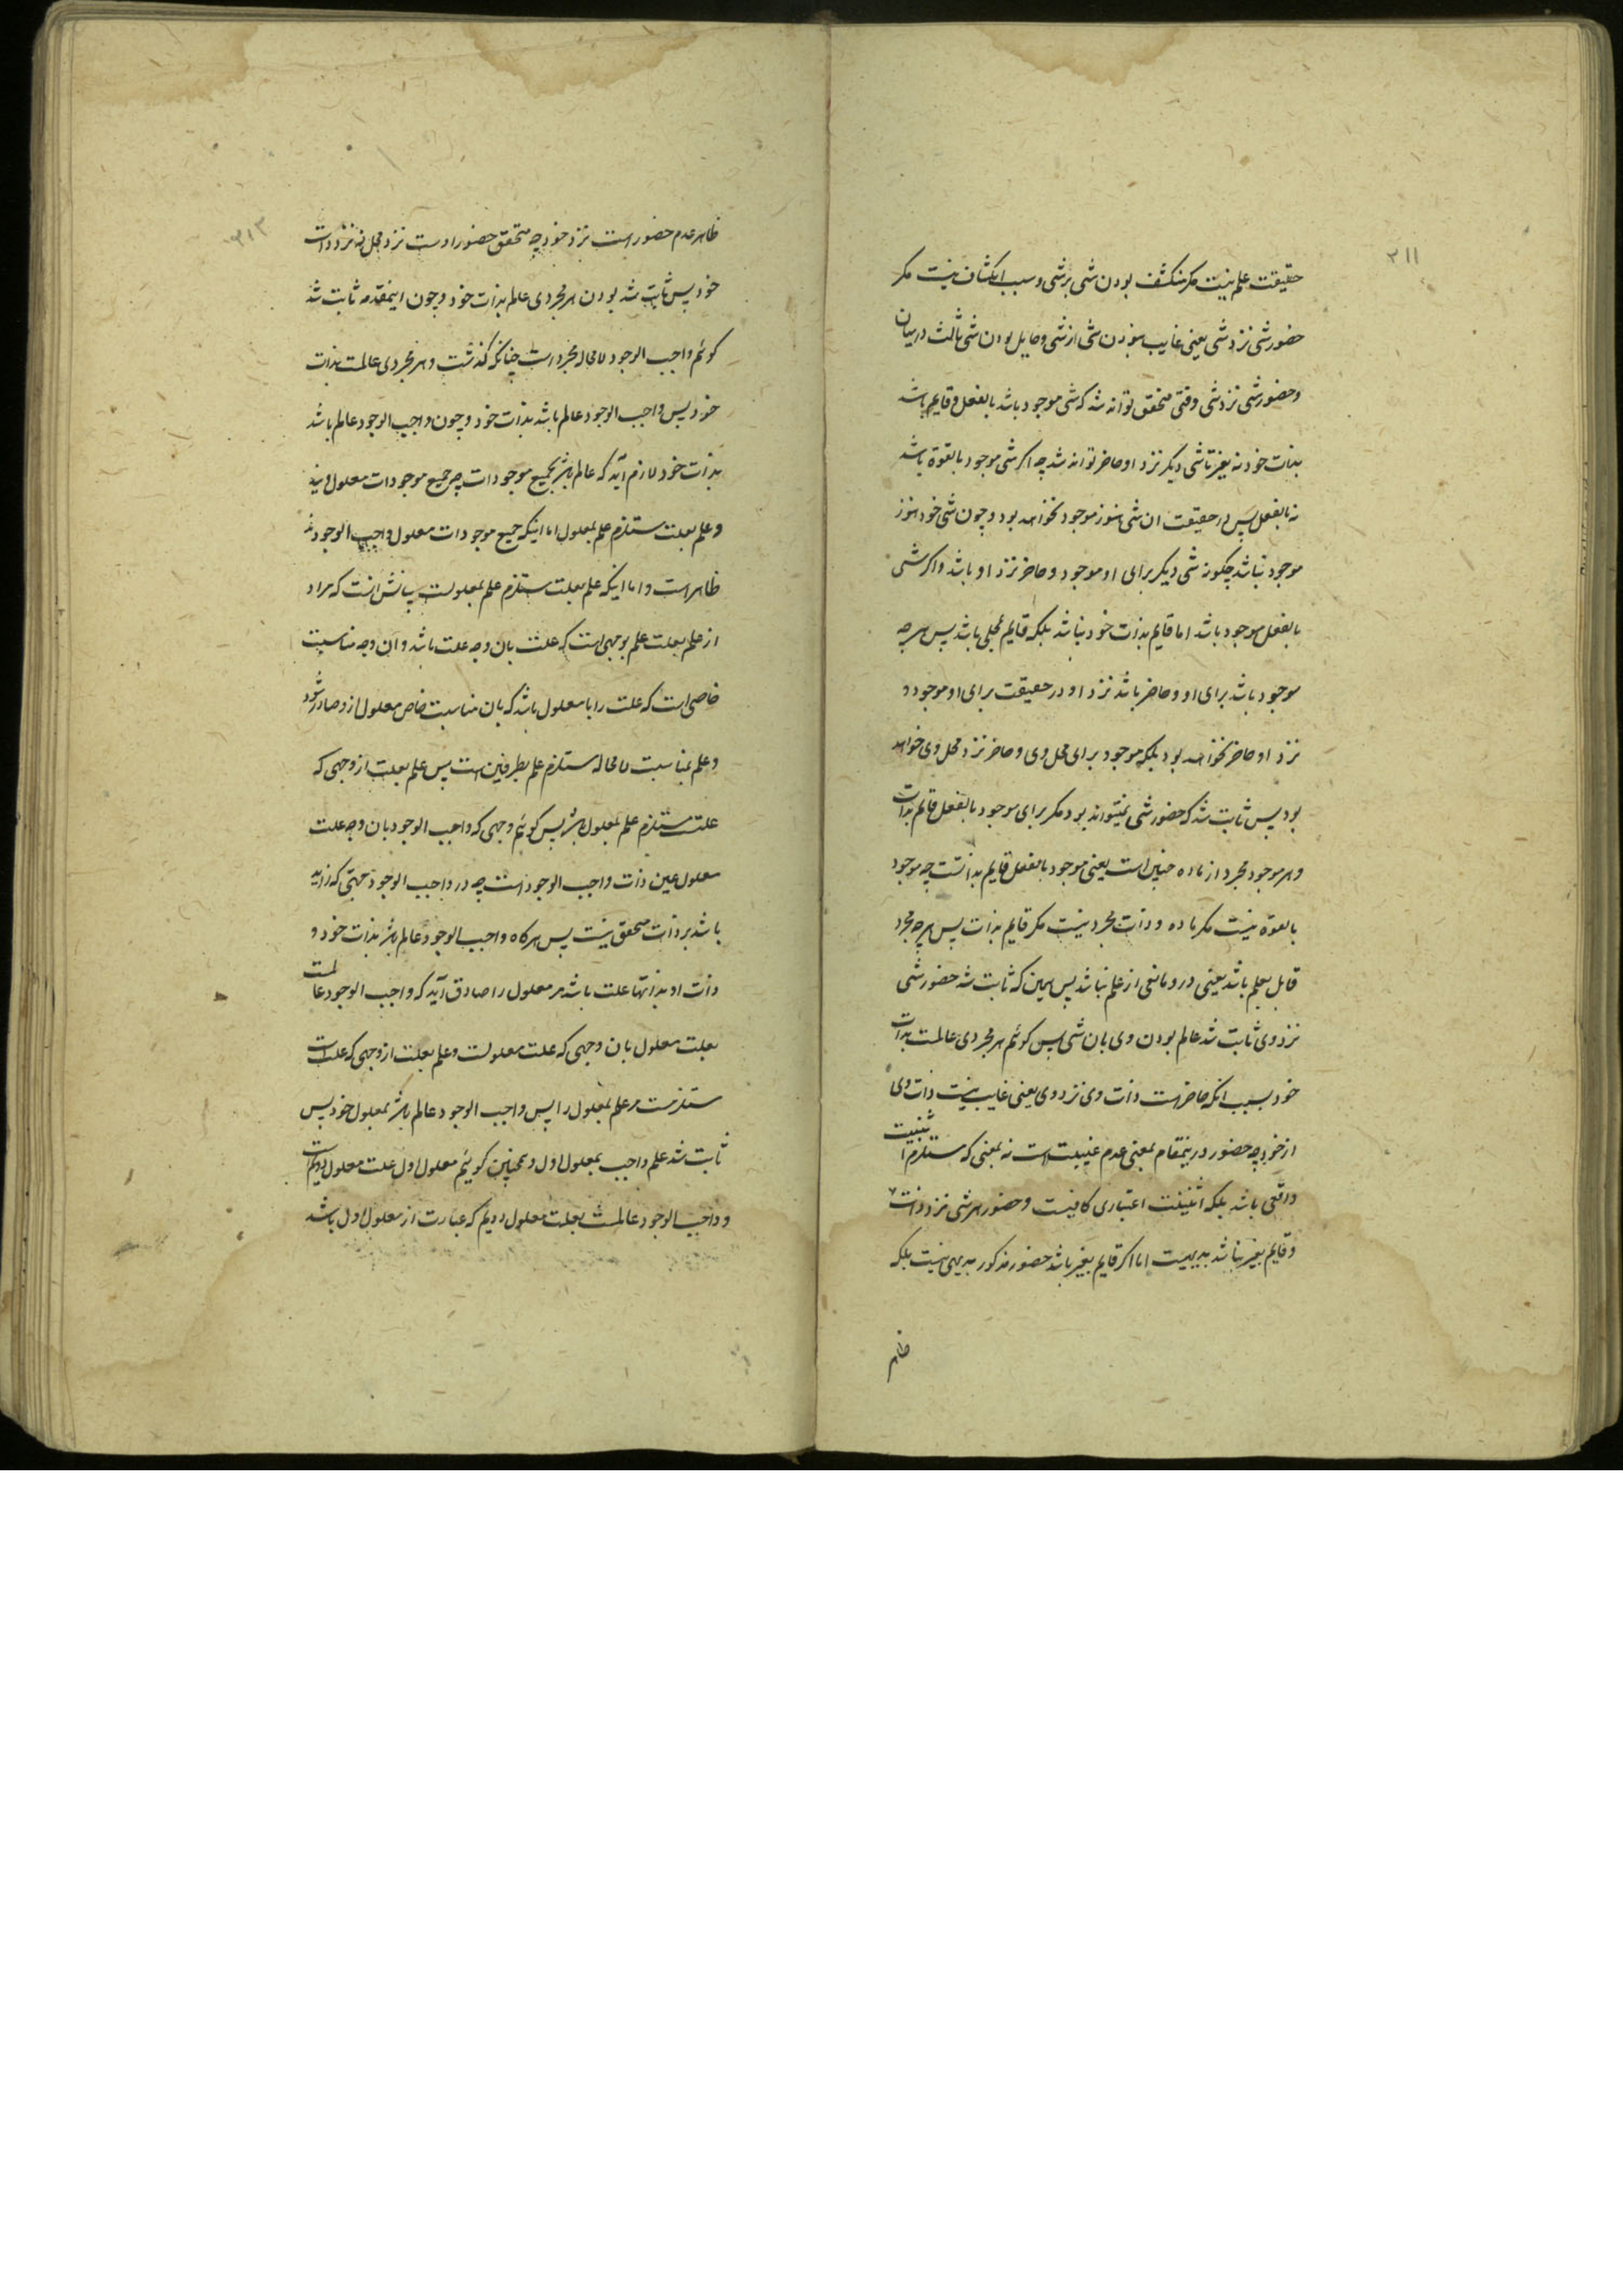 ۳۱۱
حقیقت علم نیست مکر منکشف بودن شی برشی و سبب انکشاف نیست مکر
حضور شی نزد شی یعنی غایب نبودن شی از شی و حایل بودن شی ثالث درمیان
و حضور شی نزد شی وقتی متحقق تواند شد که شی موجود باشد بالفعل و قایم باشد
بذات خود نه بغیر تا شی دیکر نزد او حاضر تواند شد چه اکر شی موجود بالقوة باشد
نه بالفعل پس در حقیقت ان شی هنوز موجود نخواهد بود و چون شی خود هنوز
موجود نباشد چکونه شی دیکر برای او موجود و حاضر نزد او باشد و اکر شی
بالفعل موجود باشد اما قایم بذات خود نباشد بلکه قایم بمحلی باشد پس هرچه
موجود باشد برای او و حاضر باشد نزد او در حقیقت برای او موجود و
نزد او حاضر نخواهد بود بلکه موجود برای محل وی و حاضر نزد محل وی خواهد
بود پس ثابت شد که حضور شی نمیتواند بود مکر برای موجود بالفعل قائم بذات
و هر موجود مجرد از ماده چنین است یعنی موجود بالفعل قایم بذاتست چه موجود
بالقوة نیست مکر ماده و ذات مجرد نیست مکر قایم بذات پس هرچه مجرد
قابل علم باشد یعنی درو مانعی از علم نباشد پس همین که ثابت شد حضور شی
نزد وی ثابت شد عالم بودن وی بان شی پس کوئیم هر مجردی عالمست بذات
خود بسبب انکه حاضر است ذات وی نزد وی یعنی غایب نیست ذات وی
از خود چه حضور درینمقام بمعنی عدم غیبت است نه بمعنی که مستلزم اثنینیت
واقعی باشد بلکه اثنینیت اعتباری کافیست و حضور هر شی نزد ذات
و قایم بغیر نباشد بدیهیست اما اکر قایم بغیر باشد حضور مذکور بدیهی نیست بلکه
ظاهر
۳۱۲
ظاهر عدم حضور است نزد خود چه متحقق حضور اوست نزد محل نه نزد ذات
خود پس ثابت شد بودن هر مجردی عالم بذات خود و چون اینمقدمه ثابت شد
کوئیم واجب الوجود لامحاله مجرد است چنانکه کذشت و هر مجردی عالمست بذات
خود پس واجب الوجود عالم باشد بذات خود و چون واجب الوجود عالم باشد
بذات خود لازم آید که عالم باشد بجمیع موجودات چه جمیع موجودات معلول ویند
و علم بعلت مستلزم علم بمعلول اما اینکه جمیع موجودات معلول واجب الوجودند
ظاهر است و اما اینکه علم بعلت مستلزم علم بمعلولست بیانش انست که مراد
از علم بعلت علم بوجهی است که علت بان وجه علت باشد و ان وجه مناسبت
خاصی است که علت را با معلول باشد که بان مناسبت خاص معلول ازو صادر شود
و علم بمناسبت لامحاله مستلزم علم بطرفین است پس علم بعلت از وجهی که
علت مستلزم علم بمعلول باشد پس کوئیم وجهی که واجب الوجود بان وجه علت
معلول عین ذات واجب الوجود است چه در واجب الوجود جهتی که زاید
باشد بر ذات متحقق نیست پس هرکاه واجب الوجود عالم باشد بذات خود و
ذات او بذاتها علت باشد مر معلول را صادق آید که واجب الوجود عالمست
بعلت معلول بان وجهی که علت معلولست و علم بعلت از وجهی که علت است
مستلزمست مر علم بمعلول را پس واجب الوجود عالم باشد بمعلول خود پس
ثابت شد علم واجب بمعلول اول و همچنین کوئیم معلول اول علت معلول دویم است
و واجب الوجود عالمست بعلت معلول دویم که عبارت از معلول اول باشد